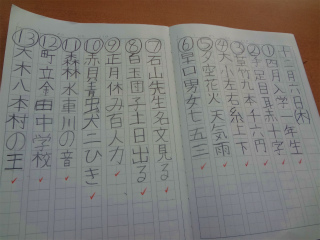 十二月六日(木)
①四月入学一年生
②手足目耳赤十字
③草竹九本千六円
④大小左右糸上下
⑤夕空花火天気雨
⑥早口男女七五三
⑦石山先生名文見る
⑧白玉団子土日出る
⑨正月休み百人力
⑩赤貝青虫犬二ひき
⑪森林水車川の音
⑫町立金田中学校
⑬大木八本村の王